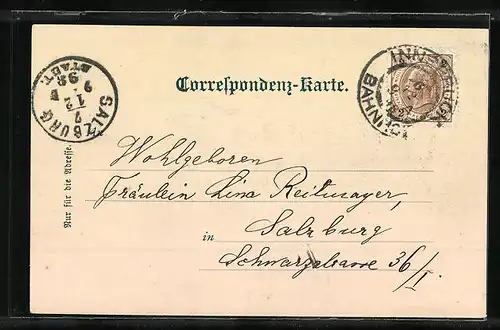 Correspondenz-Karte.
SALZBURG
STADT.
7
12
9 V
92
INNSBRUCK
BAHNHOF
Nur für die Adresse.
Wohlgeboren
Fräulein Lina Reitmayer,
Salzburg
in
Schwarzstrasse 36/I.